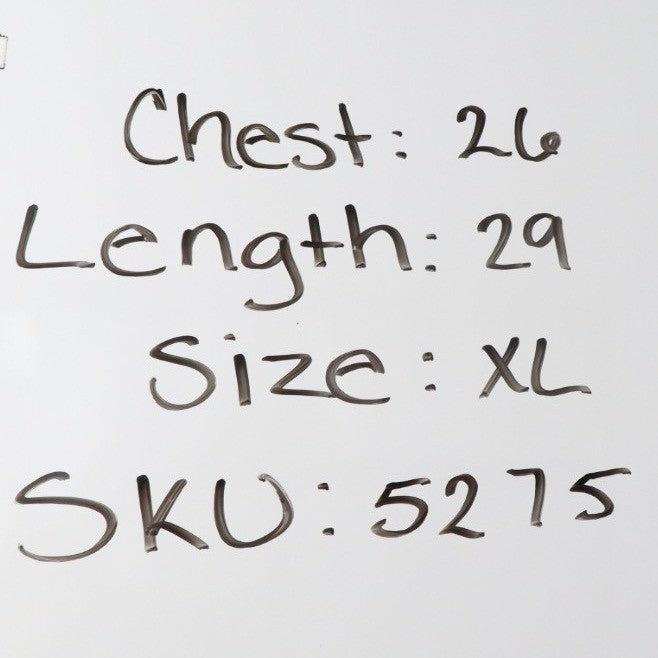 Chest: 26
Length: 29
Size: XL
SKU: 5275